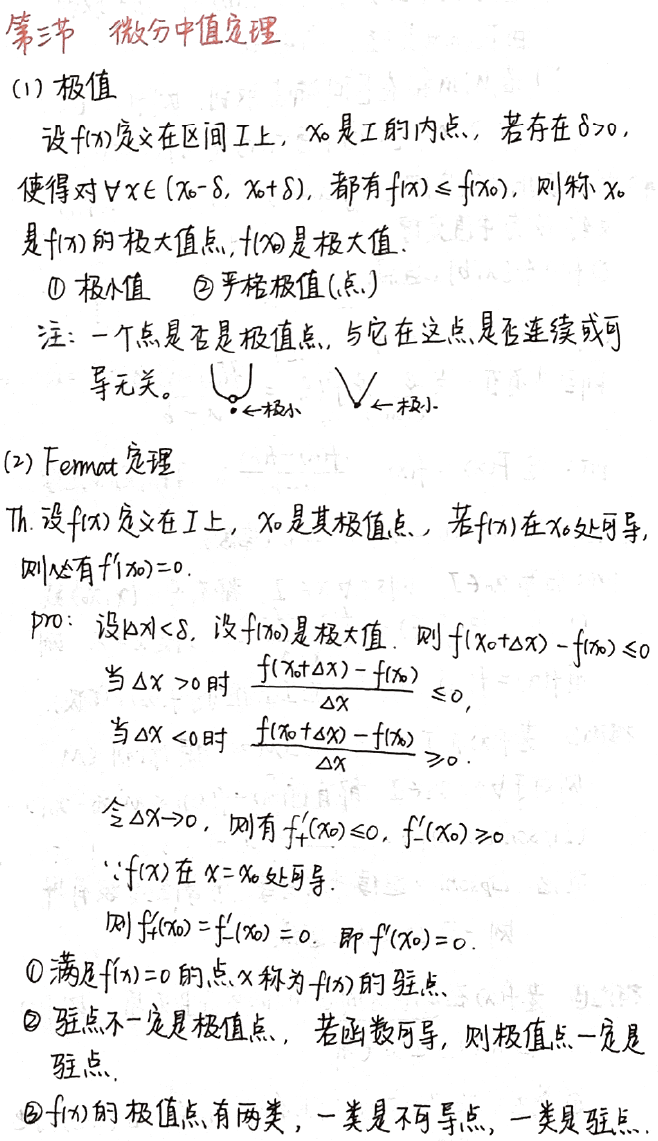 第三节 微分中值定理
(1) 极值
设f(x)定义在区间I上, x₀是I的内点, 若存在δ>0,
使得对∀x∈(x₀-δ, x₀+δ), 都有f(x)≤f(x₀), 则称x₀
是f(x)的极大值点, f(x₀)是极大值.
① 极小值 ② 严格极值(点)
注: 一个点是否是极值点, 与它在这点是否连续或可
导无关。 ←极小 ←极小
(2) Fermat 定理
Th. 设f(x)定义在I上, x₀是其极值点, 若f(x)在x₀处可导,
则必有f'(x₀)=0.
pro: 设|Δx|<δ, 设f(x₀)是极大值. 则f(x₀+Δx)-f(x₀)≤0
当Δx>0时 (f(x₀+Δx)-f(x₀))/Δx ≤0,
当Δx<0时 (f(x₀+Δx)-f(x₀))/Δx ≥0.
令Δx→0, 则有f'₊(x₀)≤0, f'₋(x₀)≥0
∵f(x)在x=x₀处可导.
则f'₊(x₀)=f'₋(x₀)=0. 即f'(x₀)=0.
① 满足f'(x)=0的点x称为f(x)的驻点
② 驻点不一定是极值点, 若函数可导, 则极值点一定是
驻点.
③ f(x)的极值点有两类, 一类是不可导点, 一类是驻点.